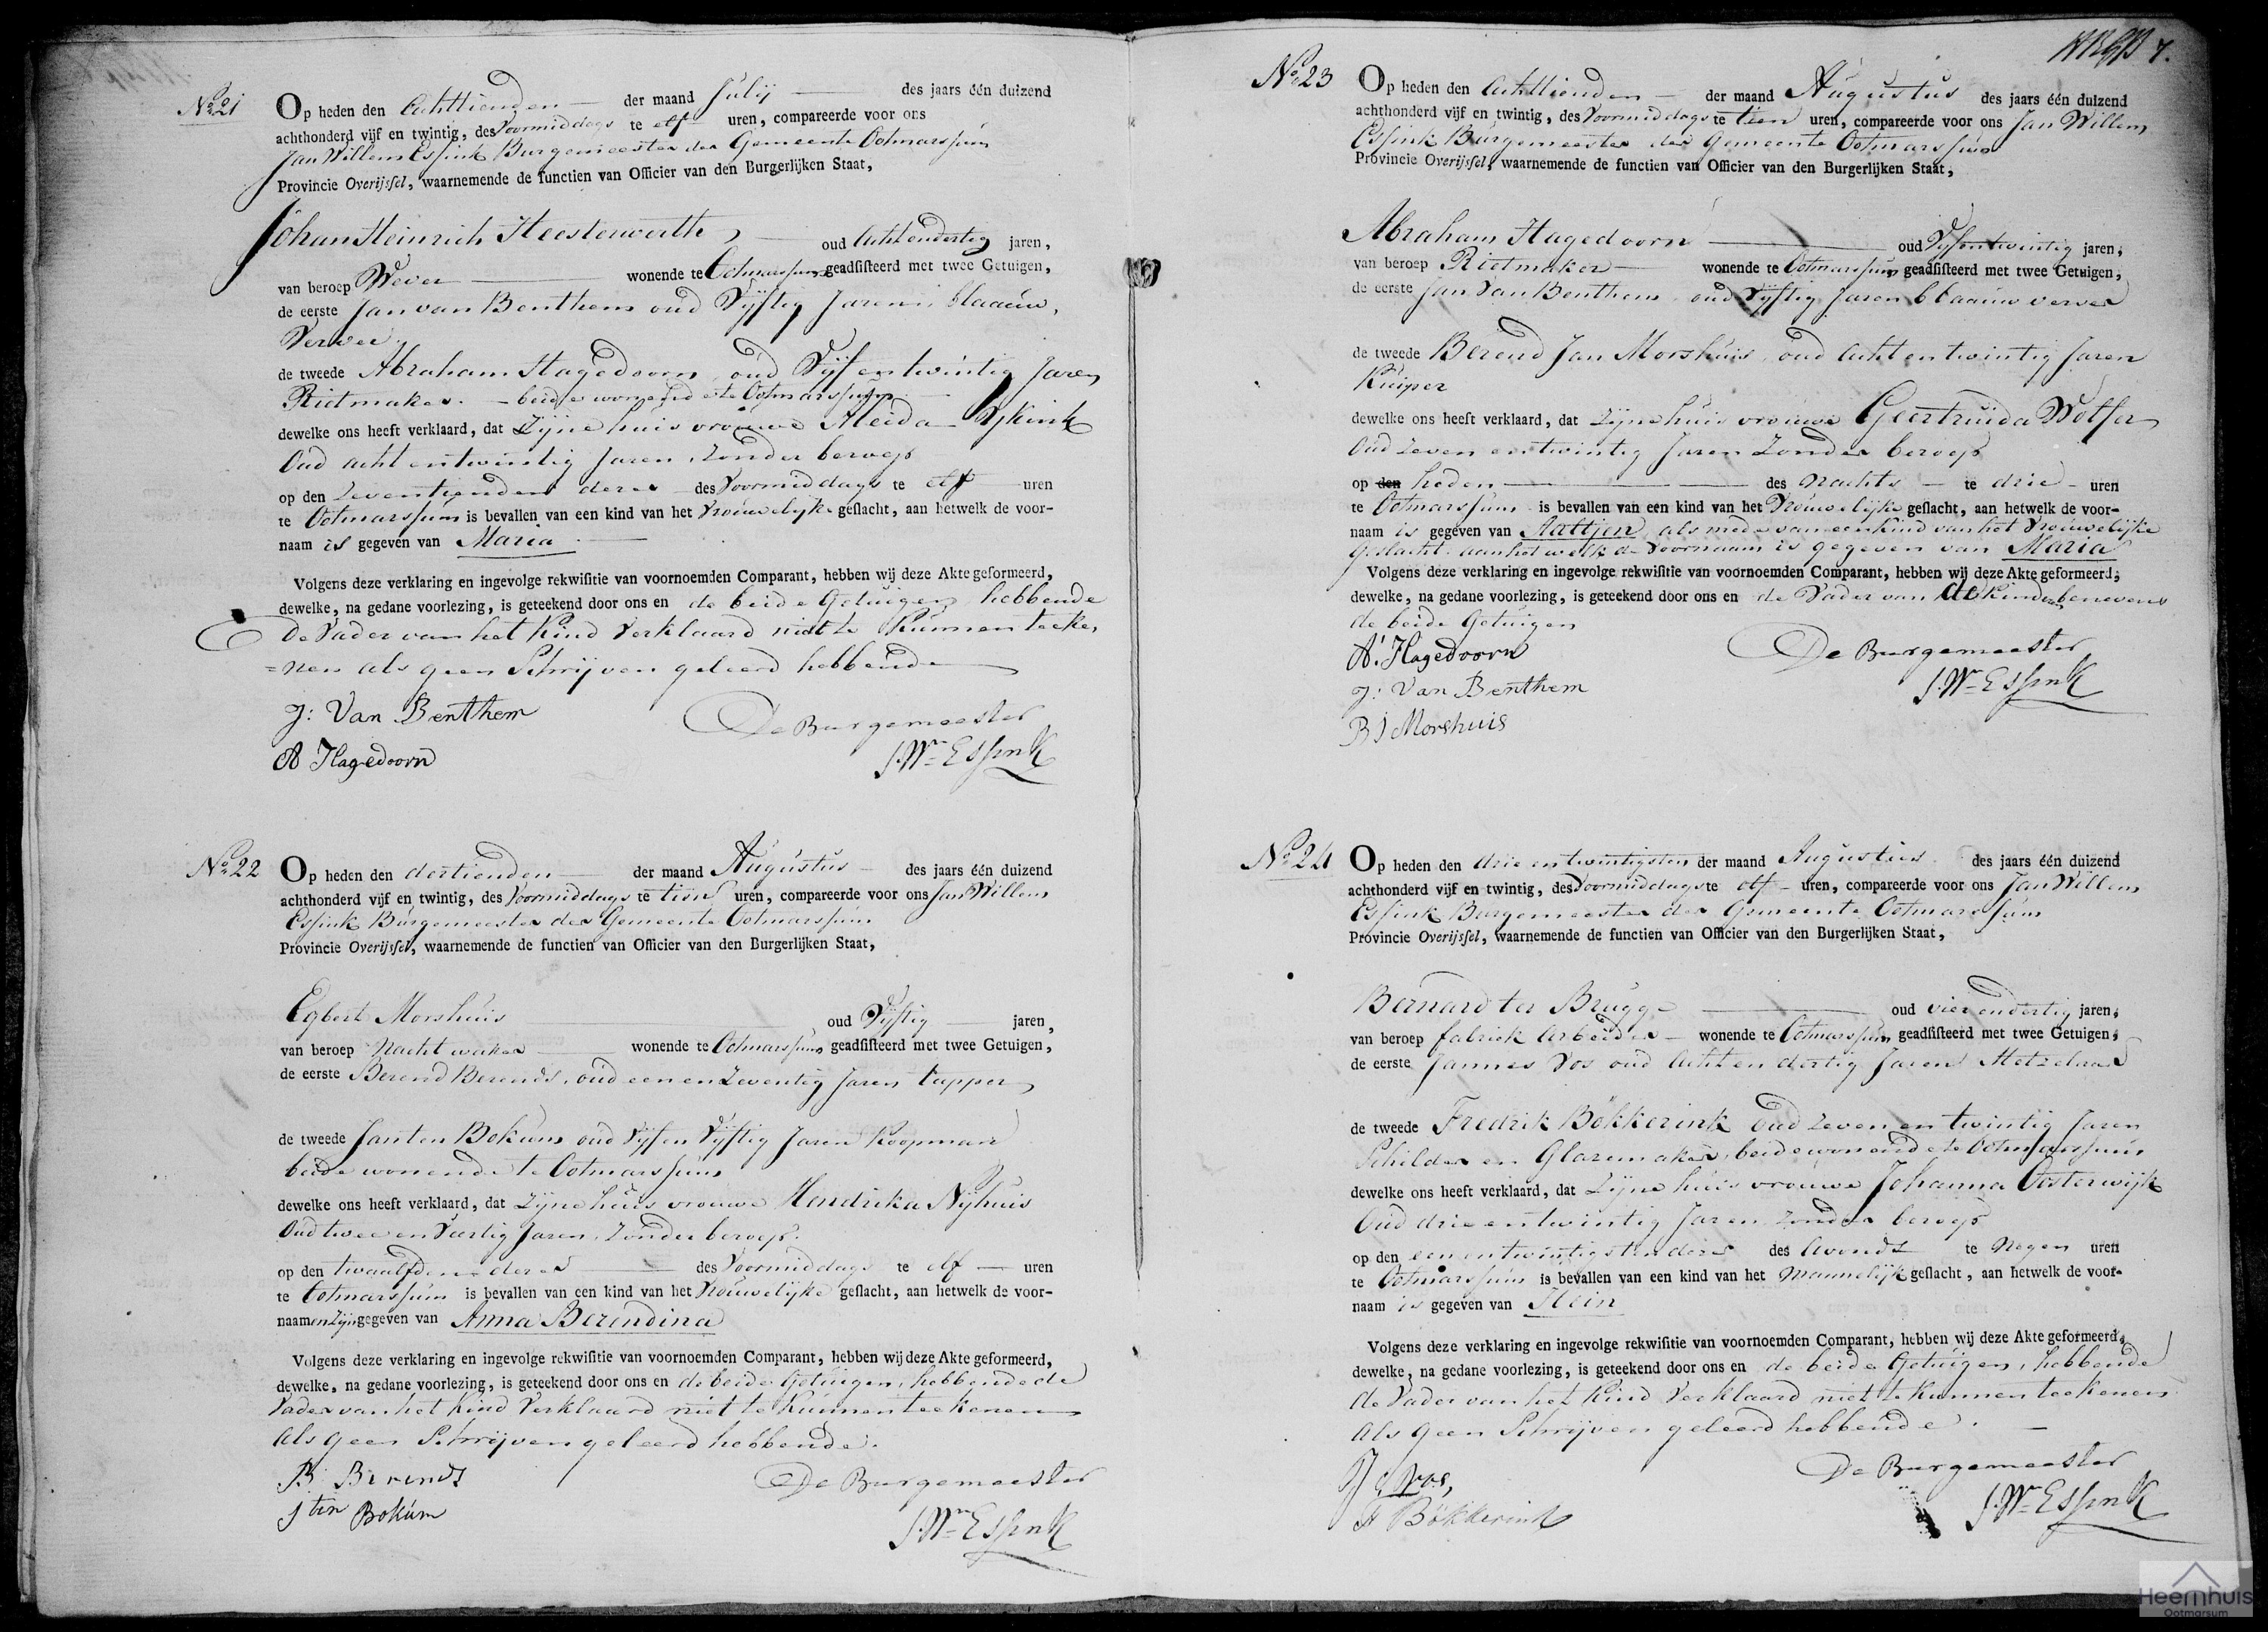 No 21
Op heden den Achttienden der maand Julij des jaars één duizend
achthonderd vijf en twintig, des Voormiddags te elf uren, compareerde voor ons
Jan Willem Essink Burgemeester der Gemeente Ootmarssum
Provincie Overijssel, waarnemende de functien van Officier van den Burgerlijken Staat,
Johan Heinrich Heesterwerth, oud Achtendertig jaren,
van beroep Wever wonende te Ootmarssum geadsisteerd met twee Getuigen,
de eerste Jan van Benthem oud Vijftig Jaren blaauw
Verwer
de tweede Abraham Hagedoorn, oud Vijf en twintig Jaren
Rietmaker. beide wonende te Ootmarssum
dewelke ons heeft verklaard, dat Zijne huisvrouwe Aleida
Oud acht en twintig Jaren, Zonder beroep
op den Zeventienden dezer des Voormiddags te elf uren
te Ootmarssum is bevallen van een kind van het Vrouwelijke geslacht, aan hetwelk de voor-
naam is gegeven van Maria
Volgens deze verklaring en ingevolge rekwisitie van voornoemden Comparant, hebben wij deze Akte geformeerd,
dewelke, na gedane voorlezing, is geteekend door ons en de beide Getuigen, hebbende
de Vader van het Kind Verklaard niet te Kunnen teeke,
=nen als geen Schrijven geleerd hebbende
J: Van Benthem De Burgemeester
A Hagedoorn J.Wm Essink
No 22
Op heden den dertienden der maand Augustus des jaars één duizend
achthonderd vijf en twintig, des Voormiddags te tien uren, compareerde voor ons Jan Willem
Essink Burgemeester der Gemeente Ootmarssum
Provincie Overijssel, waarnemende de functien van Officier van den Burgerlijken Staat,
Egbert Morshuis oud Vijftig jaren,
van beroep Nacht waker wonende te Ootmarssum geadsisteerd met twee Getuigen,
de eerste Berend Berends, oud een en Zeventig Jaren tapper
de tweede Jan ten Bokum oud Vijf en Vijftig Jaren Koopman
beide wonende te Ootmarssum
dewelke ons heeft verklaard, dat Zijne huisvrouwe Hendrika Nijhuis
Oud twee en Veertig Jaren, Zonder beroep.
op den twaalfden dezer des Voormiddags te elf uren
te Ootmarssum is bevallen van een kind van het Vrouwelijke geslacht, aan hetwelk de voor-
naamen zijn gegeven van Anna Berendina
Volgens deze verklaring en ingevolge rekwisitie van voornoemden Comparant, hebben wij deze Akte geformeerd,
dewelke, na gedane voorlezing, is geteekend door ons en de beide Getuigen, hebbende de
Vader van het Kind Verklaard niet te Kunnen teekenen
Als geen Schrijven geleerd hebbende.
B Berends De Burgemeester
J ten Bokum J.Wm Essink
7.
No 23
Op heden den Achttienden der maand Augustus des jaars één duizend
achthonderd vijf en twintig, des Voormiddags te tien uren, compareerde voor ons Jan Willem
Essink Burgemeester der Gemeente Ootmarssum
Provincie Overijssel, waarnemende de functien van Officier van den Burgerlijken Staat,
Abraham Hagedoorn oud Vijfentwintig jaren,
van beroep Rietmaker wonende te Ootmarssum geadsisteerd met twee Getuigen,
de eerste Jan Van Benthem, oud Vijftig Jaren blaauw verwer
de tweede Berend Jan Morshuis, oud Acht en twintig Jaren
Kuiper
dewelke ons heeft verklaard, dat Zijne huisvrouwe Geertruida Wolfer
Oud Zeven en twintig Jaren Zonder beroep
op den heden des Nachts te drie uren
te Ootmarssum is bevallen van een kind van het Vrouwelijke geslacht, aan hetwelk de voor-
naam is gegeven van Aaltjen als mede van een kind van het Vrouwelijke
geslacht aan het welk de Voornaam is gegeven van Maria
Volgens deze verklaring en ingevolge rekwisitie van voornoemden Comparant, hebben wij deze Akte geformeerd,
dewelke, na gedane voorlezing, is geteekend door ons en de Vader van de Kinderen benevens
de beide Getuigen
A: Hagedoorn De Burgemeester
J: Van Benthem J.Wm Essink
B J Morshuis
No 24
Op heden den drie en twintigsten der maand Augustus des jaars één duizend
achthonderd vijf en twintig, des Voormiddags te elf uren, compareerde voor ons Jan Willem
Essink Burgemeester der Gemeente Ootmarssum
Provincie Overijssel, waarnemende de functien van Officier van den Burgerlijken Staat,
Bernard ter Brugge oud vier en dertig jaren,
van beroep fabriek Arbeider wonende te Ootmarssum geadsisteerd met twee Getuigen,
de eerste Jannes Vos oud Acht en dertig Jaren Metzelaar
de tweede Fredrik Bökkerink Oud Zeven en twintig Jaren
Schilder en Glazemaker, beide wonende te Ootmarssum
dewelke ons heeft verklaard, dat Zijne huisvrouwe Johanna Oosterwijk
Oud drie en twintig Jaren Zonder beroep
op den een en twintigsten dezer des Avonds te Negen uren
te Ootmarssum is bevallen van een kind van het Mannelijk geslacht, aan hetwelk de voor-
naam is gegeven van Hein
Volgens deze verklaring en ingevolge rekwisitie van voornoemden Comparant, hebben wij deze Akte geformeerd,
dewelke, na gedane voorlezing, is geteekend door ons en de beide Getuigen, hebbende
de Vader van het Kind Verklaard niet te Kunnen teekenen
Als geen Schrijven geleerd hebbende.
Vos, De Burgemeester
F Bökkerink J.Wm Essink
Heemhuis
Ootmarsum